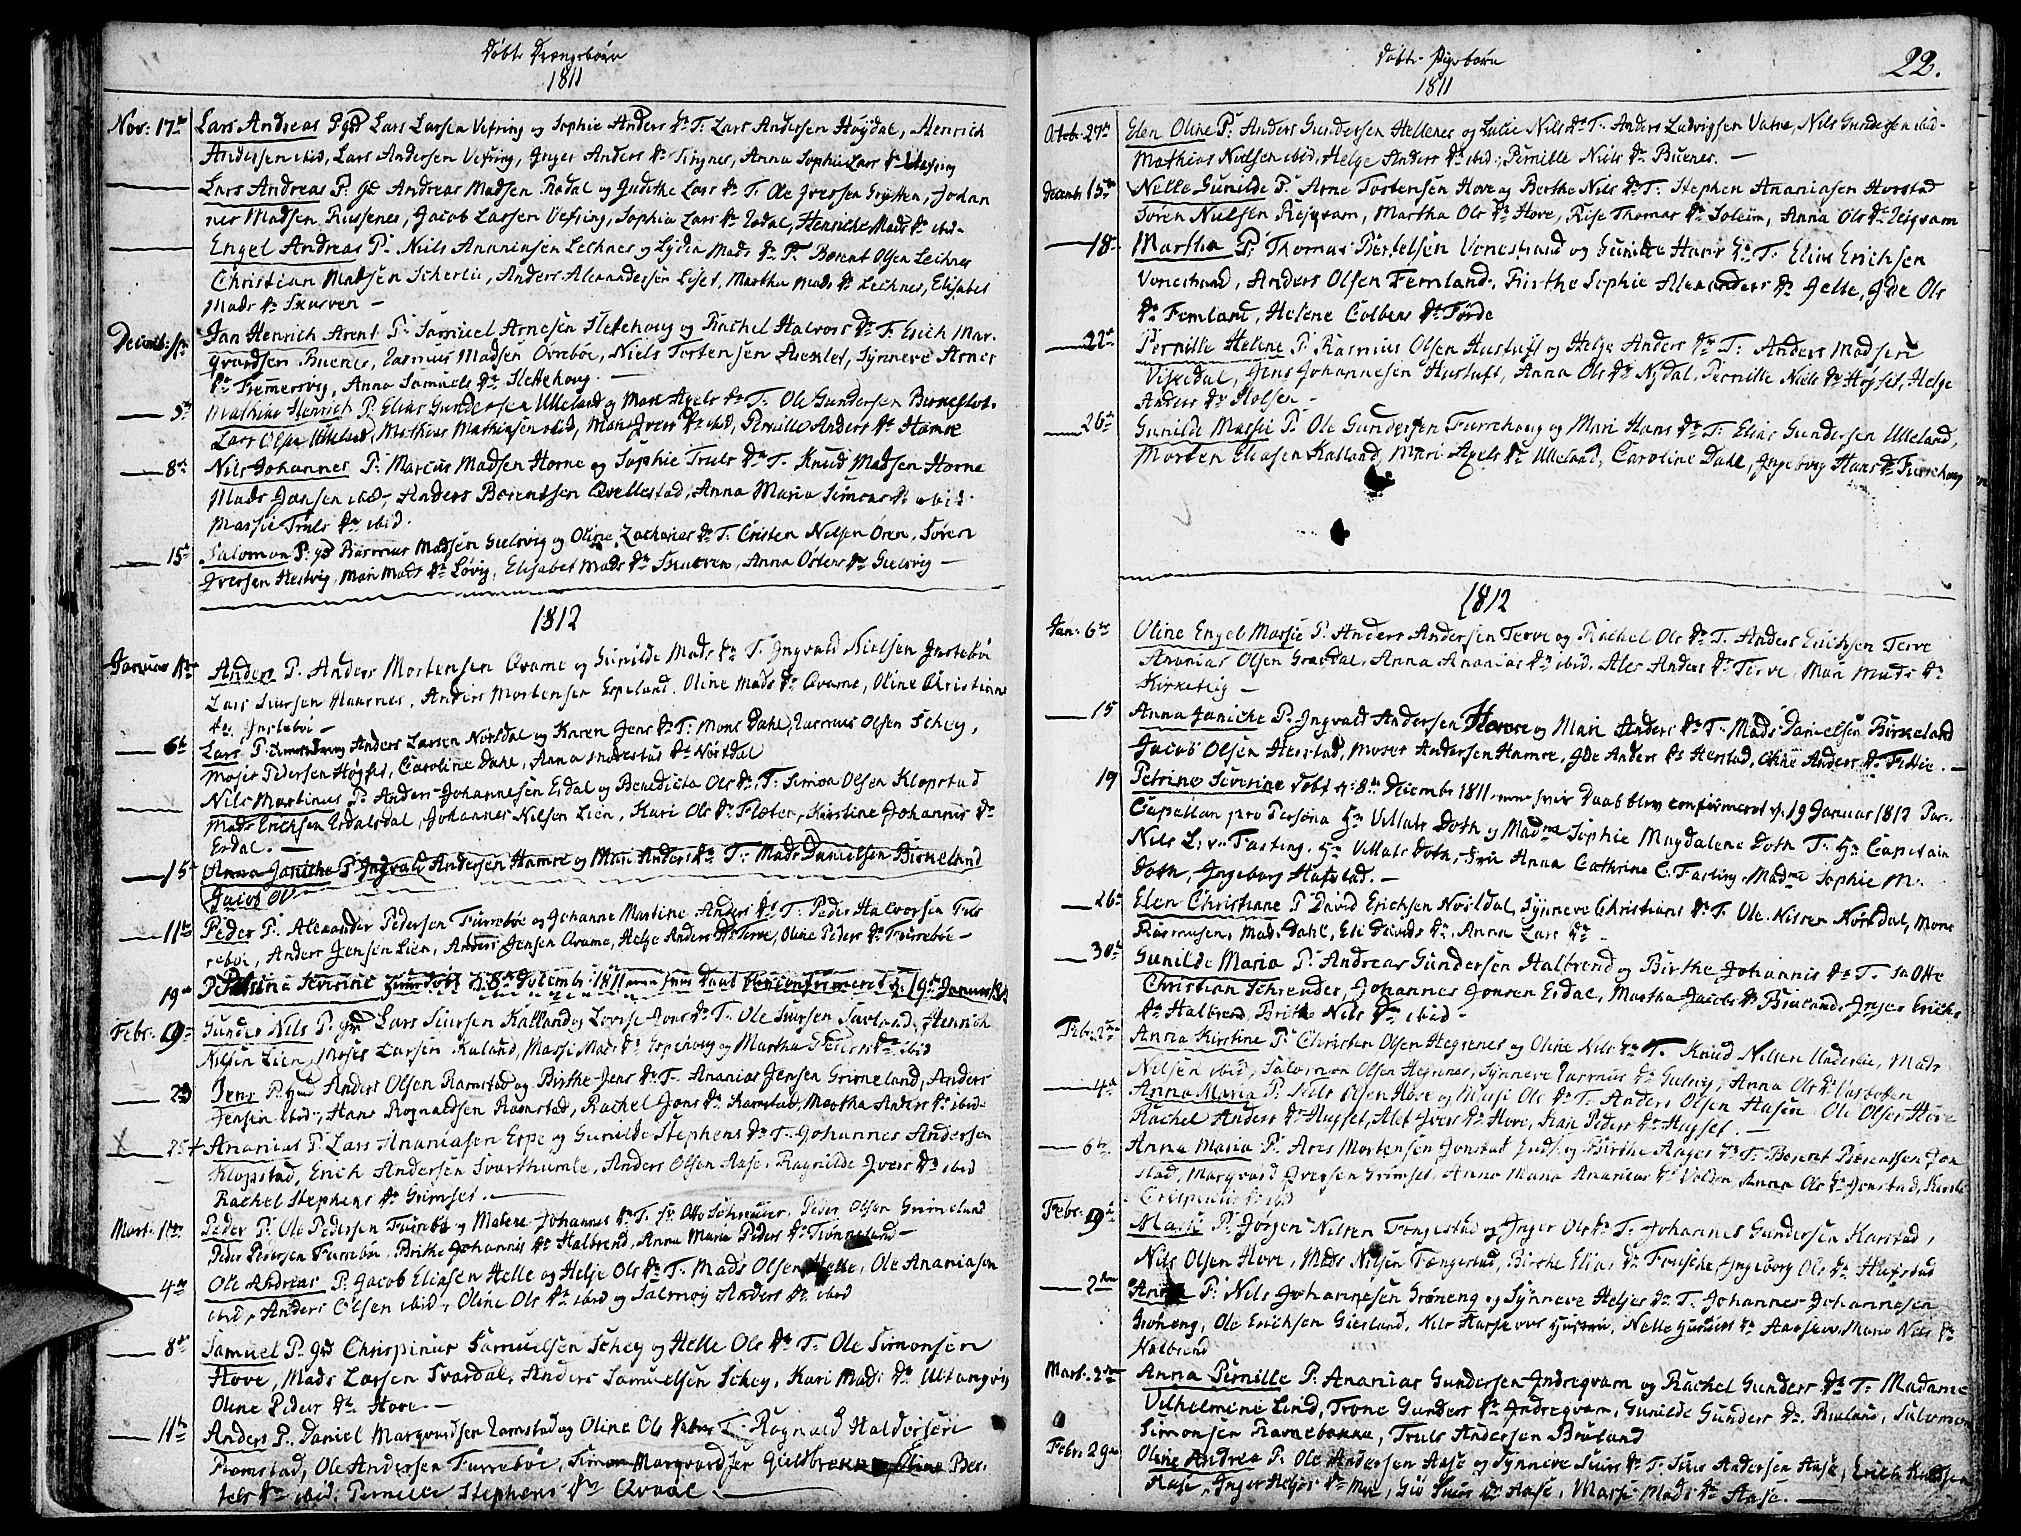 Døbte Drengebørn
1811
Nov: 17de Lars Andreas P. gd Lars Larsen Vefring og Sophie Anders Dr T. Lars Andersen Høydal, Henrich
Andersen ibid, Lars Andersen Vefring, Inger Anders Dr Tingnes, Anna Sophie Lars Dr Vefring
Lars Andreas P. gd Andreas Madsen Rødal og Judithe Lars Dr T. Ole Iversen Grytten, Johan
nes Madsen Russenes, Jacob Larsen Vefring, Sophia Lars Dr Rødal, Henriche Mads Dr ibid-
Engel Andreas P. Niels Ananiasen Lechnes og Lydia Mads Dr T. Berent Olsen Lechnes
Christian Madsen Scherlie, Anders Alexandersen Liset, Martha Mads Dr Lechnes, Elisabet
Mads Dr Skorven -
Decemb: 1ste Jan Henrich Arent P. Samuel Arnesen Slettehoug og Rachel Halvors Dr T. Erich Mar-
qvardsen Buenes, Rasmus Madsen Ørebøe, Niels Tostensen, Synneve Arnes
Dr Fremmersvig, Anna Samuels Dr Slettehoug -
Mathias Henrich P. Elias Gundersen Ulleland og Mari Axels Dr T. Ole Gundersen
Lars Olsen Ulleland, Mathias Mathiasen ibid, Mari Ivers Dr ibid, Pernille Anders Dr Hamre
8de Nils Johannes P. Marius Madsen Horne og Sophie Truls Dr T. Knud Madsen Horne
Mads Jansen ibid, Anders Berentsen Qvellestad, Anna Maria Simens Dr ibid.
Massie Truls Dr ibid.
15 Salomon P. gd Rasmus Madsen Gielsvig og Oline Zacharias Dr T. Cristen Nilsen Øren, Søren
Iversen Hestvig, Mari Mads Dr Løvig, Elisabet Mads Dr Skorven, Anna Ostens Dr Gielsvig -
1812
Januar 1ste Anders P. Anders Mortensen Qvame og Gunilde Mads Dr T. Ingvald Nielsen Instebøe
Lars Siursen Haarnes, Anders Mortensen Espeland, Oline Mads Dr Qvame, Oline Christians
Dr Instebøe -
6te Lars P. Anders Larsen Nørstdal og Karen Jens Dr T: Mons Dahl, Rasmus Olsen Schey,
Moses Pedersen Høyset, Caroline Dahl, Anna Dr Nørstdal
Nils Martinus P. Anders Johannesen Erdal og Benedicta Ols Dr T. Simon Olsen Klopstad
Mads Erichsen Erdalsdal, Johannes Nilsen Lien, Kari Ols Dr Flæten, Kirstine Johannis Dr
Erdal. -
15 Anna Janiche P. Ingvald Andersen Hamre og Mari Anders Dr T. Mads Danielsen Birkeland
Jacob Ol
11te Peder P. Alexander Pedersen Furrebøe og Johanne Martine Anders Dr T. Peder Halvorsen Fur
rebøe, Anders Jensen Lien, Anders Jensen Qvame, Helge Anders Dr Terve, Oline Peders Dr Furrebøe -
19de Petrine Severine døbt d. 8de Decemb: 1811 men hvis Daab blev confirmeret d. 19de Januar 1812
Febr. 9de Gunder Nils P. gd Lars Siursen Kalland og Lovise Jons Dr T. Ole Siursen Sarland, Henrich
Nilsen Lien, Moses Larsen Kalland, Massi Mads Dr Espehoug og Martha Peders Dr ibid
23 Jens P. gd Anders Olsen Ramstad og Birthe Jens Dr T. Ananias Jensen Grimeland, Anders
Jensen ibid, Hans Rognaldsen Ramstad, Rachel Jons Dr Ramstad, Martha Anders Dr ibid-
25 Ananias P. Lars Ananiasen Espe og Gunilde Stephens Dr T. Johannes Andersen
Klopstad, Erich Andersen Svarthumle, Anders Olsen Aase, Ragnilde Ivers Dr ibid
Rachel Stephens Dr Grimset. -
Mart. 1ste Peder P. Ole Pedersen Furrebø og Malene Johannes Dr T. Sr Otto Schreuder, Peder Olsen Grimeland
Peder Pedersen Furrebøe, Birthe Johannis Dr Halbrend, Anna Maria Peders Dr Grimeland -
4de Ole Andreas P. Jacob Eliasen Helle og Helje Ols Dr T. Mads Olsen Helle, Ole Ananiasen
ibid, Anders Olsen ibid, Oline Ols Dr ibid og Salmøy Anders Dr ibid
8de Samuel P. gd Chrispinus Samuelsen Schey og Helle Ols Dr T. Ole Simonsen
Hove, Mads Larsen Svardal, Anders Samuelsen Schey, Kari Mads Dr Ultangvig
Oline Peders Dr Hove. -
11te Anders P. Daniel Marqvardsen Ramstad og Oline Ols Dr T. Rognald Haldorsen
Ramstad, Ole Andersen Furrebøe, Simon Marqvardsen Gieldbrekke, Oline Ber-
tels Dr ibid. Pernille Stephens Dr Qvaal. -
Døbte Pigebørn
1811
22.
Octob. 27de Elen Oline P. Anders Gundersen Hellenes og Lucie Nils Dr T. Anders Ludvigsen Vatne, Nils Gundersen ibid-
Mathias Nielsen ibid, Helge Anders Dr ibid, Pernille Niels Dr Buenes. -
Decemb. 15de Nelle Gunilde P. Arne Tostensen Hove og Berthe Nils Dr T. Stephen Ananiasen Horstad
Søren Nielsen Reiqvam, Martha Ols Dr Hove, Rise Thomas Dr Soleim, Anna Ols Dr Reiqvam
18 Martha P. Thomas Bertelsen Vonestrand og Gunilde Hans Dr T. Elias Erichsen
Vonestrand, Anders Olsen Femland, Birthe Sophie Alexanders Dr Jelle, Ide Ols
Dr Femland, Helene Colbens Dr Førde
22de Pernille Helene P. Rasmus Olsen Hustuft og Helje Anders Dr T. Anders Madsen
Viskedal, Jens Johannesen Hustuft, Anna Ols Dr Nydal, Pernille Niels Dr Høyset, Helge
Anders Dr Holsen -
26de Gunilde Massie P. Ole Gundersen Furrehoug og Mari Hans Dr T. Elias Gundersen Ulleland,
Morten Eliasen Kalland, Mari Axels Dr Ulleland, Caroline Dahl, Ingeborg Hans Dr Furrehoug
1812
Jan: 6te Oline Engel Massie P. Anders Andersen Terve og Rachel Ols Dr T. Anders Erichsen Terve
Ananias Olsen Gravdal, Anna Ananias Dr ibid. Ales Anders Dr Terve, Mari Mads Dr
Kirketeig -
15 Anna Janiche P. Ingvald Andersen Hamre og Mari Anders Dr T. Mads Danielsen Birkeland
Jacob Olsen Herstad, Moses Andersen Hamre, Ide Anders Dr Herstad, Oline Anders Dr Fittie. -
19 Petrine Severine døbt d. 8de Decemb 1811 men hvis Daab blev confirmeret d. 19 Januar 1812 Par.
Capellan pro Persona Hr Villats Doth og Madme Sophie Magdalene Doth T. Hr Capitain
Nils Fasting. Hr Villats Doth, Anna Cathrine C. Fasting, Madme Sophie M.
Doth, Ingeborg Hafstad. -
26de Elen Christiane P. David Erichsen Nøstdal, Synneve Christians Dr T. Ole Nilsen Nøstdal, Mons
Rasmusen, Mads Dahl, Eli Davids Dr, Anna Lars Dr -
30te Gunilde Maria P. Andreas Gundersen Halbrend og Birthe Johannis Dr T. Sr Otte
Christian Schreuder, Johannes Jonsen Erdal, Martha Jacobs Dr Bruland, Inger Erichs
Dr Halbrend, Brithe Nils Dr ibid -
Febr. 2den Anna Kirstine P. Christen Olsen Hegrenes og Oline Nils Dr T. Knud Nilsen Underlie, Mads
Nilsen ibid, Salomon Olsen Hegrenes, Synneve Rasmus Dr Gielsvig, Anna Ols Dr
4de Anna Maria P. Nils Olsen Hove og Massi Ols Dr T. Anders Olsen Hafsen, Ole Olsen Hove
Rachel Anders Dr Huset, Alet Ivers Dr Hove, Kari Peders Dr Huset. -
6te Anna Maria P. Ares Mortensen Jonstad og Birthe Aages Dr T. Berent Jon
stad, Marqvard Iversen Grimset, Anna Maria Ananias Dr Volden, Anna Ols Dr Jonstad, Kirsti
Crispini Dr ibid
Febr: 9de Massi P. Jørgen Nilsen Fængestad og Inger Ols Dr T. Johannes Gundersen Karstad,
Nils Olsen Hove, Mads Nilsen Fængestad, Birthe Elias Dr, Ingeborg Ols Dr Hafstad
2den Anna P. Nils Johannesen Grøneng og Synneve Heljes Dr T. Johannes Johannesen
Grøneng, Ole Erichsen Gierland, Nils Aarseøen, Nelle Gunders Dr Aarseøen, Maria Nils Dr
Halbrend
Mart. 2den Anna Pernille P. Ananias Gundersen Indreqvam og Rachel Gunders Dr T. Madame
Vilhelmine Lind, Trone Gunders Dr Indreqvam, Gunilde Gunders Dr Bruland, Salomon
Simonsen Ramebakke, Truls Andersen Bruland
Febr. 29de Oline Andrea P. Ole Andersen Aase og Synneve Siurs Dr T. Siur Andersen Aase, Erich Knudsen
Aase, Inger Heljes Dr Moe, Giø Siurs Dr Aase, Massi Mads Dr Aase. -